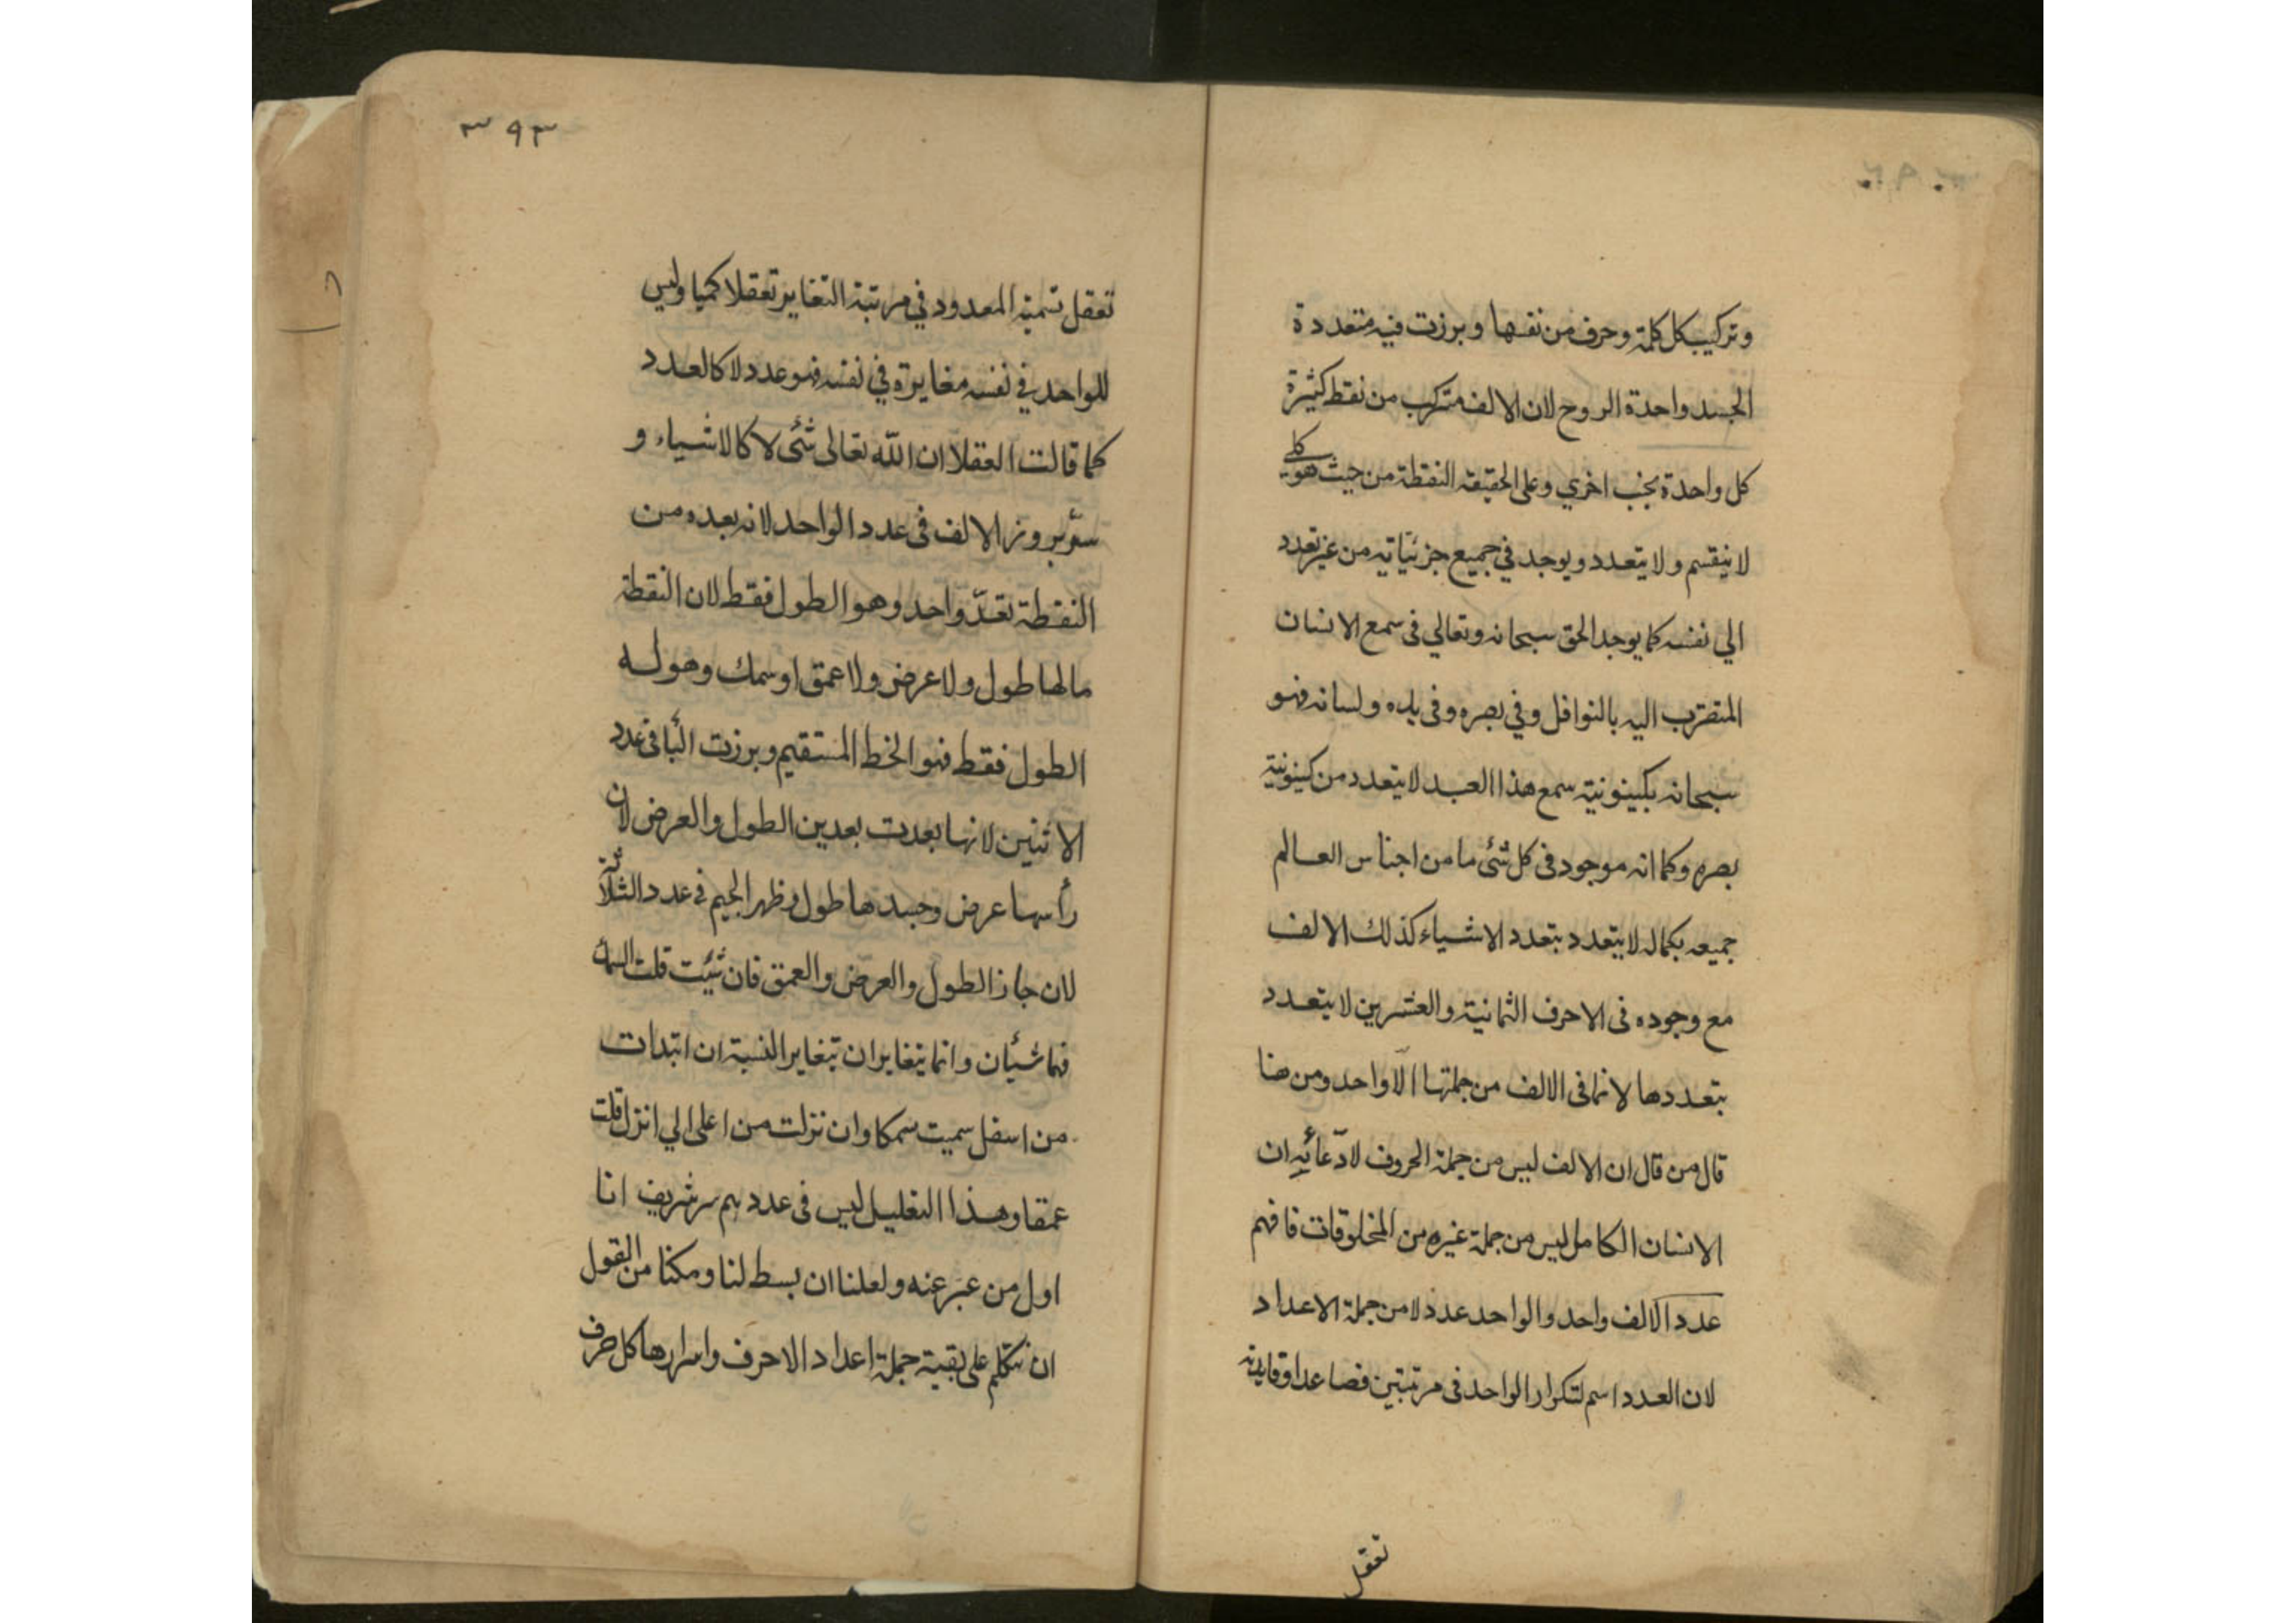 وتركيب كل كلمة وحرف من نفسها وبرزت فيه متعددة
الجسد واحدة الروح لان الالف متركب من نقط كثيرة
كل واحدة بجنب اخري وعلى الحقيقة النقطة من حيث هو كلي
لا ينقسم ولا يتعدد ويوجد في جميع جزئياته من غير تعدد
الي نفسه كما يوجد الحق سبحانه وتعالي فى سمع الانسان
المتقرب اليه بالنوافل وفي بصره وفى يده ولسانه فهو
سبحانه بكينونية سمع هذا العبد لا يتعدد من كينونية
بصره وكما انه موجود فى كل شئ ما من اجناس العالم
جميعه بكماله لا يتعدد بتعدد الاشياء كذلك الالف
مع وجوده فى الاحرف الثمانية والعشرين لا يتعدد
بتعددها لانما فى الالف من جملتها الّا واحد ومن هنا
قال من قال ان الالف ليس من جملة الحروف لادّعائه ان
الانسان الكامل ليس من جملة غيره من المخلوقات فافهم
عدد الالف واحد والواحد عدد لا من جملة الاعداد
لان العدد اسم لتكرار الواحد فى مرتبتين فصاعدا وفايدته
تعقل
٣٩٣
تعقل تسمية المعدود في مرتبة التغاير تعقلا كميا وليس
للواحد في نفسه مغايرة في نفسه فهو عدد لا كالعدد
كما قالت العقلا ان اللّه تعالى شئ لا كالاشياء و
سرّ بروز الالف فى عدد الواحد لانه بعده من
النقطة بعدّ واحد وهو الطول فقط لان النقطة
مالها طول ولا عرض ولا عمق او سمك وهو له
الطول فقط فهو الخط المستقيم وبرزت البا فى عدد
الاثنين لانها بعدت بعدين الطول والعرض لان
رأسها عرض وجسدها طول وظهر الجيم فى عدد الثلاثة
لان حاز الطول والعرض والعمق فان شئت قلت السمك
فهما شيئان وانما يتغايران بتغاير النسبة ان ابتدات
من اسفل سميت سمكا وان نزلت من اعلى الي انزل قلت
عمقا وهذا التعليل ليس فى عددهم سر شريف انا
اول من عبر عنه ولعلنا ان بسط لنا ومكنا من القول
ان نتكلم على بقية جملة اعداد الاحرف واسرارها كل حرف